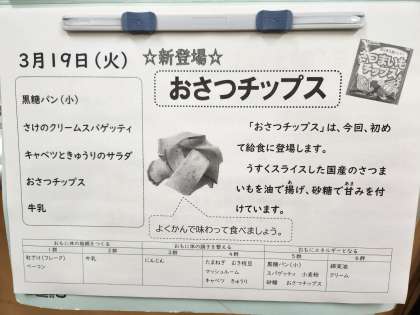 3月19日(火)
☆新登場☆
おさつチップス
さつまいも
チップス
黒糖パン(小)
さけのクリームスパゲッティ
キャベツときゅうりのサラダ
おさつチップス
牛乳
「おさつチップス」は、今回、初め
て給食に登場します。
うすくスライスした国産のさつま
いもを油で揚げ、砂糖で甘みを付
けています。
よくかんで味わって食べましょう。
おもに体の組織をつくる
おもに体の調子を整える
おもにエネルギーとなる
1群 2群 3群 4群 5群 6群
鮭ざけ(フレーク) 牛乳 にんじん たまねぎ むき枝豆 黒糖パン(小) 綿実油
ベーコン マッシュルーム スパゲッティ 小麦粉 クリーム
キャベツ きゅうり 砂糖 おさつチップス